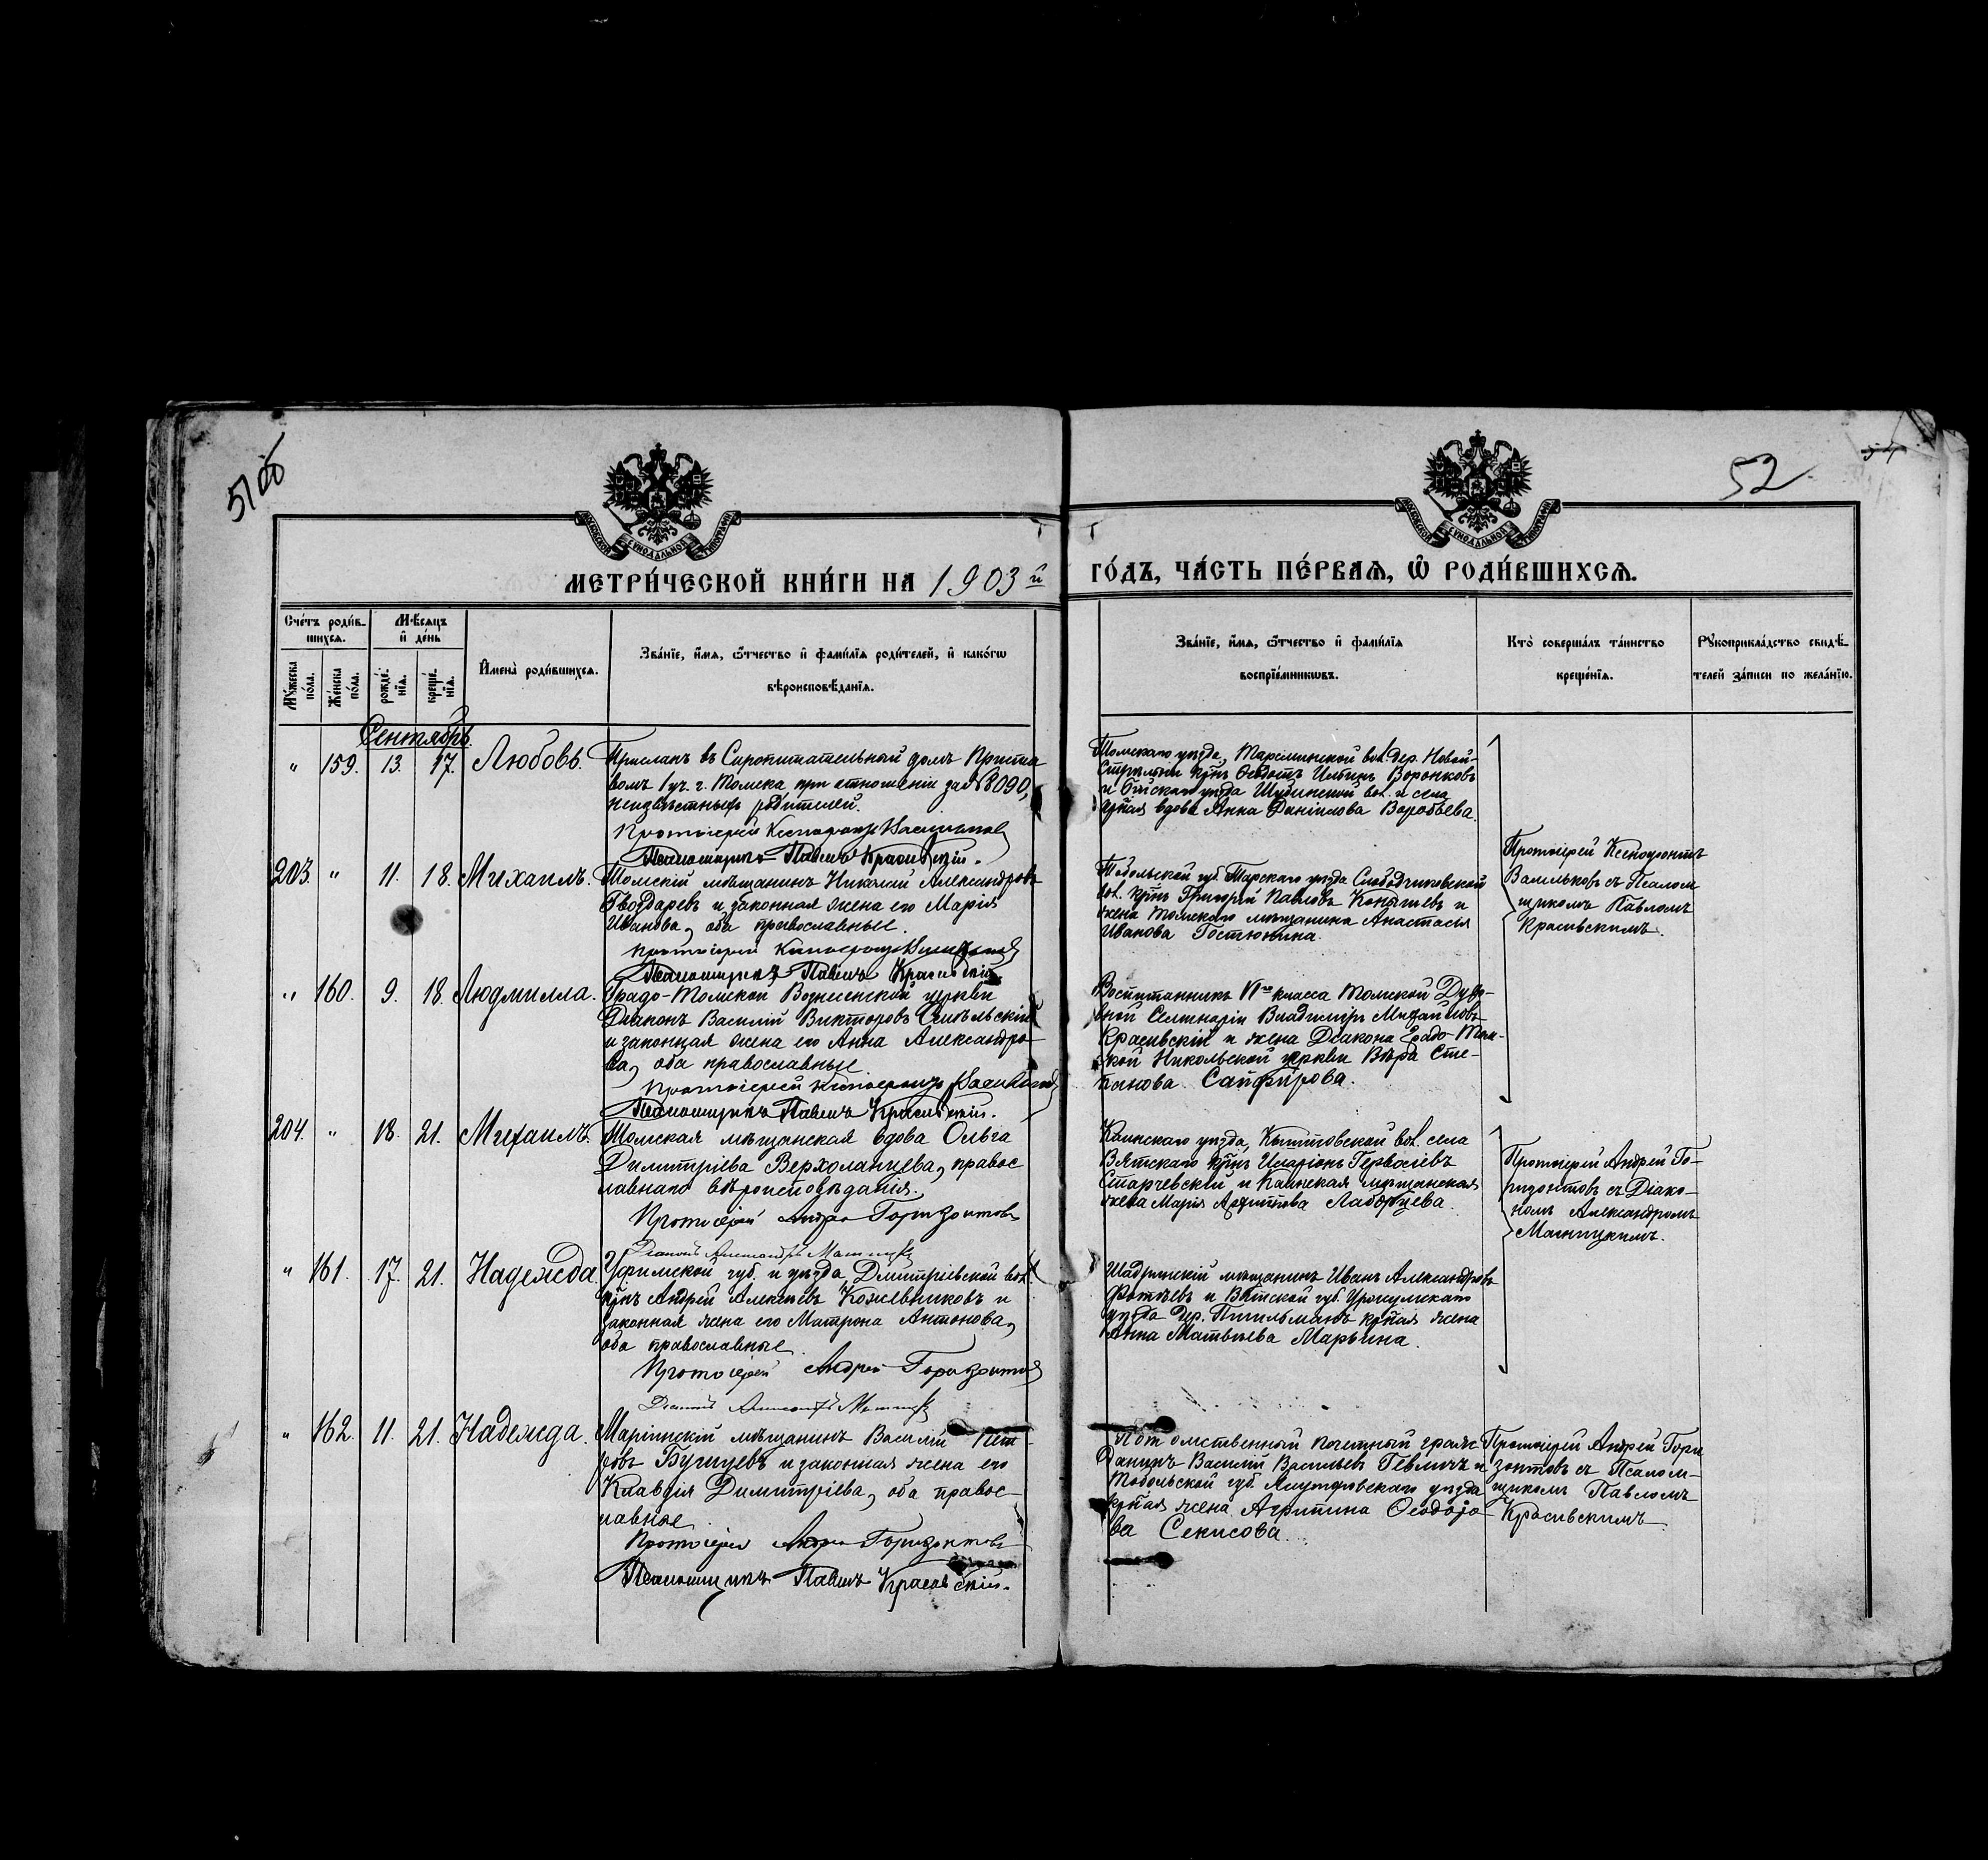 52
МЕТРИ́ЧЕСКОЙ КНИ́ГИ НА 1903 й ГО́ДЪ, ЧА́СТЬ ПЕ́РВАЯ, Ѡ РОДИ́ВШИХСѦ.
Сче́тъ роди́в-
шихсѧ.
Мѣ́сѧцъ
и҆ де́нь
Мꙋ́жеска
по́ла.
Же́нска
по́ла.
рожде́-
нїѧ.
креще́-
нїѧ.
И҆мена̀ роди́вшихсѧ.
Зва́нїе, и҆́мѧ, ѻ҆́тчество и҆ фамѝлїѧ роди́телей, и҆ како́гѡ
вѣроисповѣ́данїѧ.
Зва́нїе, и҆́мѧ, ѻ҆́тчество и҆ фамѝлїѧ
воспрїе́мникѡвъ.
Кто̀ соверша́лъ та́инство
креще́нїѧ.
Рꙋкоприкла́дство свидѣ́-
телей за́писи по жела́нїю.
Сентябрь.
" 159. 13. 17. Любовь.
Присланъ въ Сиропитательный домъ Приста
вомъ 1 уч. г. Томска при отношеніи за № 8090,
неизвѣстныхъ родителей.
Протоіерей Ксенофонтъ Васильковъ
Псаломщикъ Павелъ Красивскій.
Томскаго уѣзда, вол. дер. Ново-
крн. Ѳедотъ Воронковъ
и Бійскаго уѣзда вол. и села
вдова Анна Даніилова Воробьева.
203. " 11. 18. Михаилъ.
Томскій мѣщанинъ Николай Александровъ
Гвоздаревъ и законная жена его Марія
Иванова, оба православные.
Протоіерей Ксенофонтъ Васильковъ
Псаломщикъ Павелъ Красивскій.
Тобольской губ. Тарскаго уѣзда Слободчиковской
вол. крн. Григорій Павловъ и
жена томскаго мѣщанина Анастасія
Иванова Гостюнина.
Протоіерей Ксенофонтъ
Васильковъ съ Псалом
щикомъ Павломъ
Красивскимъ.
" 160. 9. 18. Людмилла.
Градо-Томской Вознесенской церкви
Діаконъ Василій Викторовъ
и законная жена его Анна Александро-
ва, оба православные.
Протоіерей Ксенофонтъ Васильковъ
Псаломщикъ Павелъ Красивскій.
Воспитанникъ VI го класса Томской Духо-
вной Семинаріи Владиміръ Михайловъ
Красивскій и жена Діакона Градо-Том-
ской Никольской церкви Вѣра Сте-
панова Сапфирова.
204. " 18. 21. Михаилъ.
Томская мѣщанская вдова Ольга
Димитріева Верхоланцева, правос
лавнаго вѣроисповѣданія.
Протоіерей Андрей Горизонтовъ
Діаконъ Александръ
Каинскаго уѣзда, вол. села
Вятскаго крн. Иларіонъ Гервасіевъ
Старчевскій и Каинская мѣщанская
жена Марія
Протоіерей Андрей Го-
ризонтовъ съ Діако-
номъ Александромъ
" 161. 17. 21. Надежда.
Уфимской губ. и уѣзда, Дмитріевской вол.
крн. Андрей Алексѣевъ Кожевниковъ и
законная жена его Матрона Антонова,
оба православные.
Протоіерей Андрей Горизонтовъ
Діаконъ Александръ
Шадринскій мѣщанинъ Иванъ Александровъ
Фотѣевъ и Вятской губ. Уржумскаго
уѣзда дер. крн-ая жена
Анна Матвѣева Марьина.
" 162. 11. 21. Надежда.
Маріинскій мѣщанинъ Василій Пет-
ровъ Бушуевъ и законная жена его
Клавдія Димитріева, оба правос-
лавные.
Протоіерей Андрей Горизонтовъ
Псаломщикъ Павелъ Красивскій.
Потомственный почетный граж
данинъ Василій Васильевъ и
Тобольской губ. Ялуторовскаго уѣзда
крн-ая жена Агрипина Ѳеодоро-
ва Секисова.
Протоіерей Андрей Гори
зонтовъ съ Псалом-
щикомъ Павломъ
Красивскимъ.